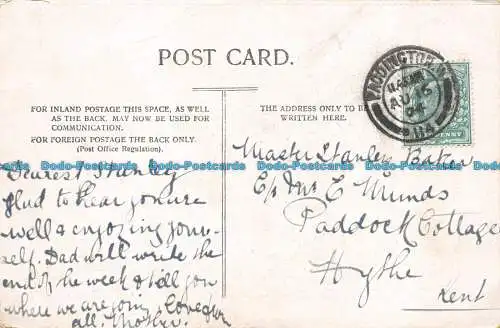 POST CARD.
FOR INLAND POSTAGE THIS SPACE, AS WELL
AS THE BACK, MAY NOW BE USED FOR
COMMUNICATION.
FOR FOREIGN POSTAGE THE BACK ONLY.
(Post Office Regulation).
Dearest Stanley
Glad to hear you are
well & enjoying your-
self. Dad will write the
end of the week & tell you
where we are going. Love from
all. Mother.
THE ADDRESS ONLY TO BE
WRITTEN HERE.
PENNY
Master Stanley
C/o Mrs E Munds
Paddock Cottage
Hythe
Kent
Dodo-Postcards Dodo-Postcards Dodo-Postcards Dodo-Postcards Dodo-Postcards